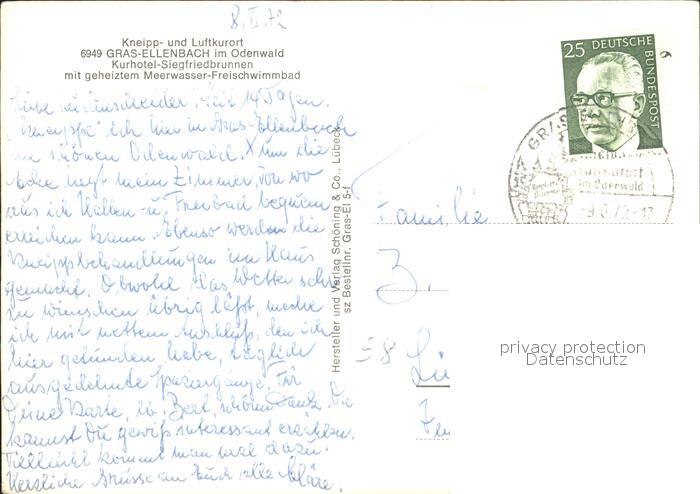 8.II.72
Kneipp- und Luftkurort
6949 GRAS-ELLENBACH im Odenwald
Kurhotel-Siegfriedbrunnen
mit geheiztem Meerwasser-Freischwimmbad
Liebe Lüdenscheider! Seit 14 Tagen
"kneippe" ich hier in Gras-Ellenbach
im schönen Odenwald. X um die
Ecke liegt mein Zimmer, von wo
aus ich Hallen- u. Freibad bequem
erreichen kann. Ebenso werden die
Kneippbehandlungen im Haus
gemacht. Obwohl das Wetter sehr
zu wünschen übrig läßt, mache
ich mit nettem Anschluß, den ich
hier gefunden habe, täglich
ausgedehnte Spaziergänge. Für
Deine Karte, lb. Bert, schönen Dank. Da
kannst Du gewiß interessant erzählen.
Vielleicht kommt man mal dazu.
Herzliche Grüsse an Euch alle Kläre.
Hersteller und Verlag Schöning & Co., Lübeck
sz Bestellnr. Gras-El 5-f
25 DEUTSCHE
BUNDESPOST
GRAS
Luftkurort
im Odenwald
-9.6.72-17
Familie
Z.
58 Lü
privacy protection
Datenschutz